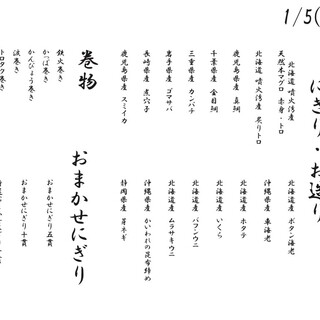 1/5(
にぎり・お造り
北海道 噴火湾産
天然本マグロ 赤身・トロ
北海道 噴火湾産 炙りトロ
鹿児島県産 真鯛
千葉県産 金目鯛
三重県産 カンパチ
岩手県産 ゴマサバ
長崎県産 煮穴子
鹿児島県産 スミイカ
北海道産 ボタン海老
沖縄県産 車海老
北海道産 ホタテ
北海道産 いくら
北海道産 バフンウニ
北海道産 ムラサキウニ
沖縄県産 かいわれの昆布締め
静岡県産 芽ネギ
巻物
鉄火巻き
かっぱ巻き
かんぴょう巻き
トロタク巻き
おまかせにぎり
おまかせにぎり五貫
おまかせにぎり十貫